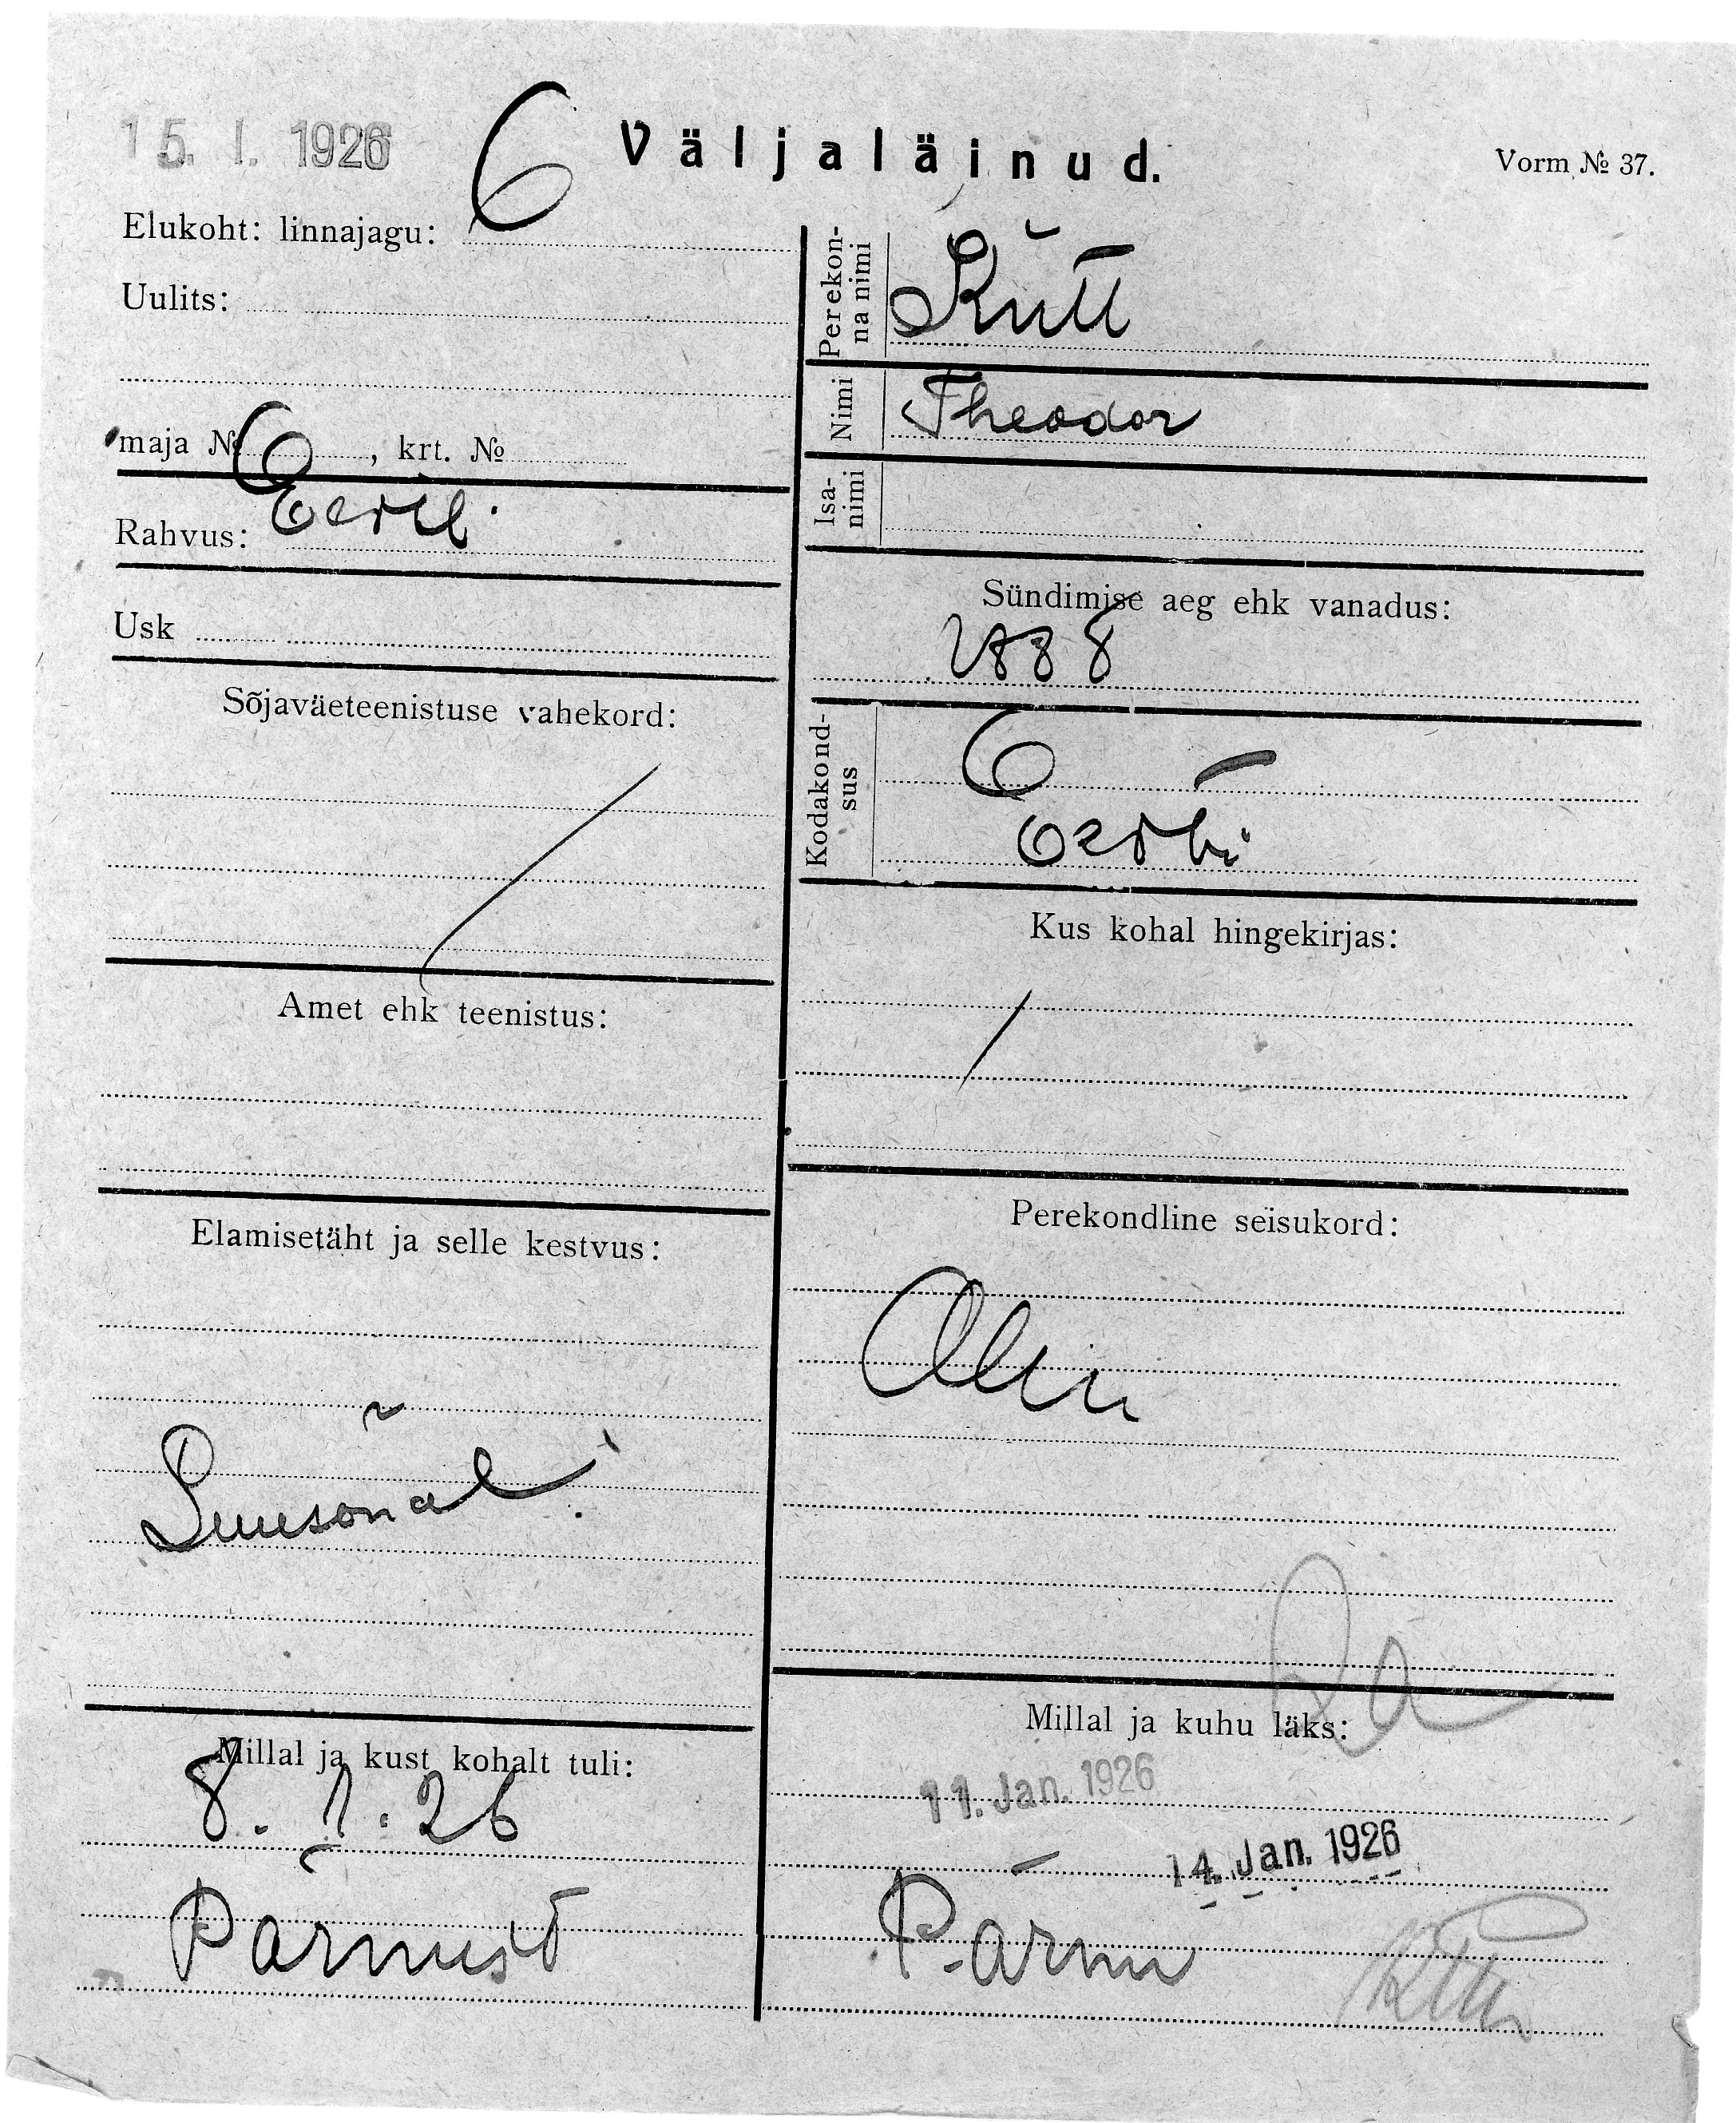 15. I. 1926
Väljaläinud.
Vorm № 37.
Elukoht: linnajagu: 6
Uulits:
maja № 6, krt. №
Rahvus: Eesti
Usk
Sõjaväeteenistuse vahekord:
Amet ehk teenistus:
Elamisetäht ja selle kestvus:
Suusõnal
Millal ja kust kohalt tuli:
8. 1. 26
Pärnust
Perekonna nimi
Kütt
Nimi
Theodor
Isanimi
Sündimise aeg ehk vanadus:
1888
Kodakondsus
Eesti
Kus kohal hingekirjas:
Perekondline seisukord:
Millal ja kuhu läks:
11. Jan. 1926
14. Jan. 1926
Pärnu